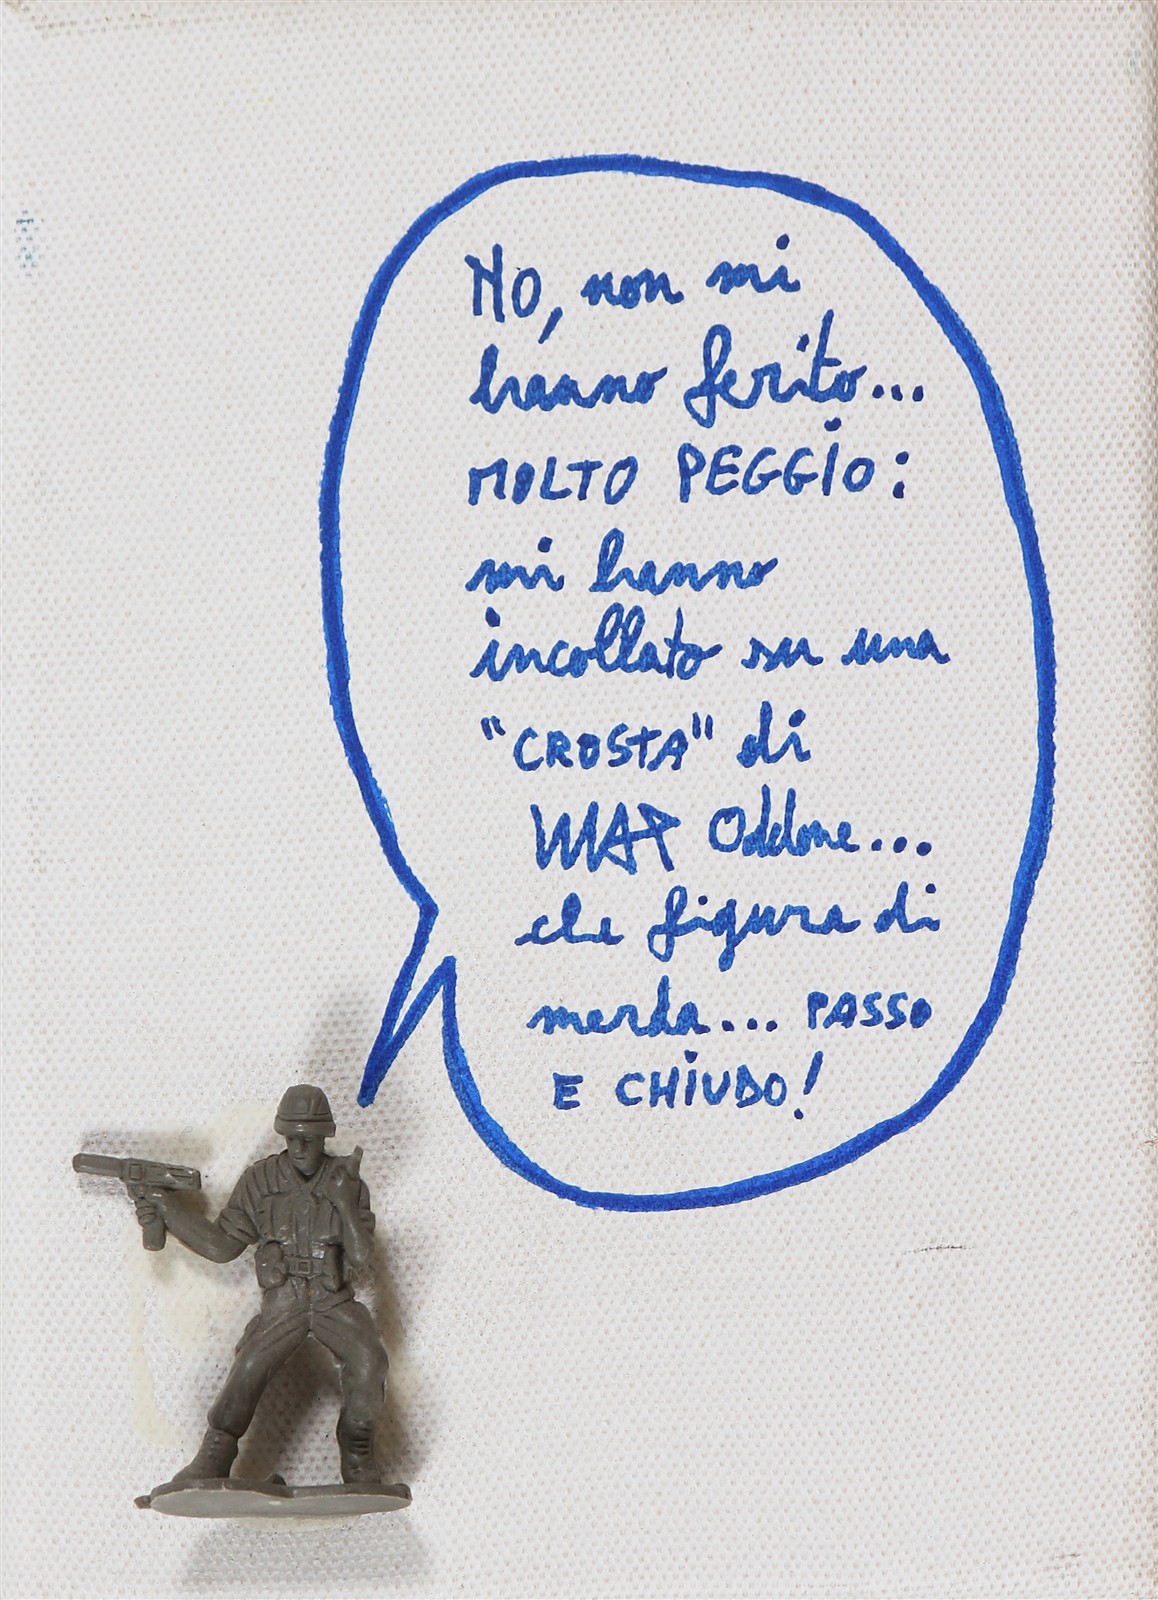 NO, non mi
hanno ferito...
MOLTO PEGGIO:
mi hanno
incollato su una
"CROSTA" di
WAP Oddone...
che figura di
merda... PASSO
E CHIUDO!